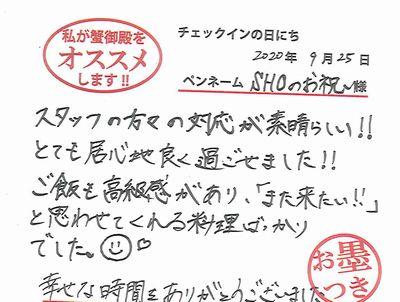 私が蟹御殿を
オススメ
します!!
チェックインの日にち
2020年 9月25日
ペンネーム SHOのお祝〜様
スタッフの方々の対応が素晴らしい!!
とても居心地良く過ごせました!!
ご飯も高級感があり、「また来たい!!」
と思わせてくれる料理ばっかり
でした。
幸せな時間をありがとうございました
お墨
つき